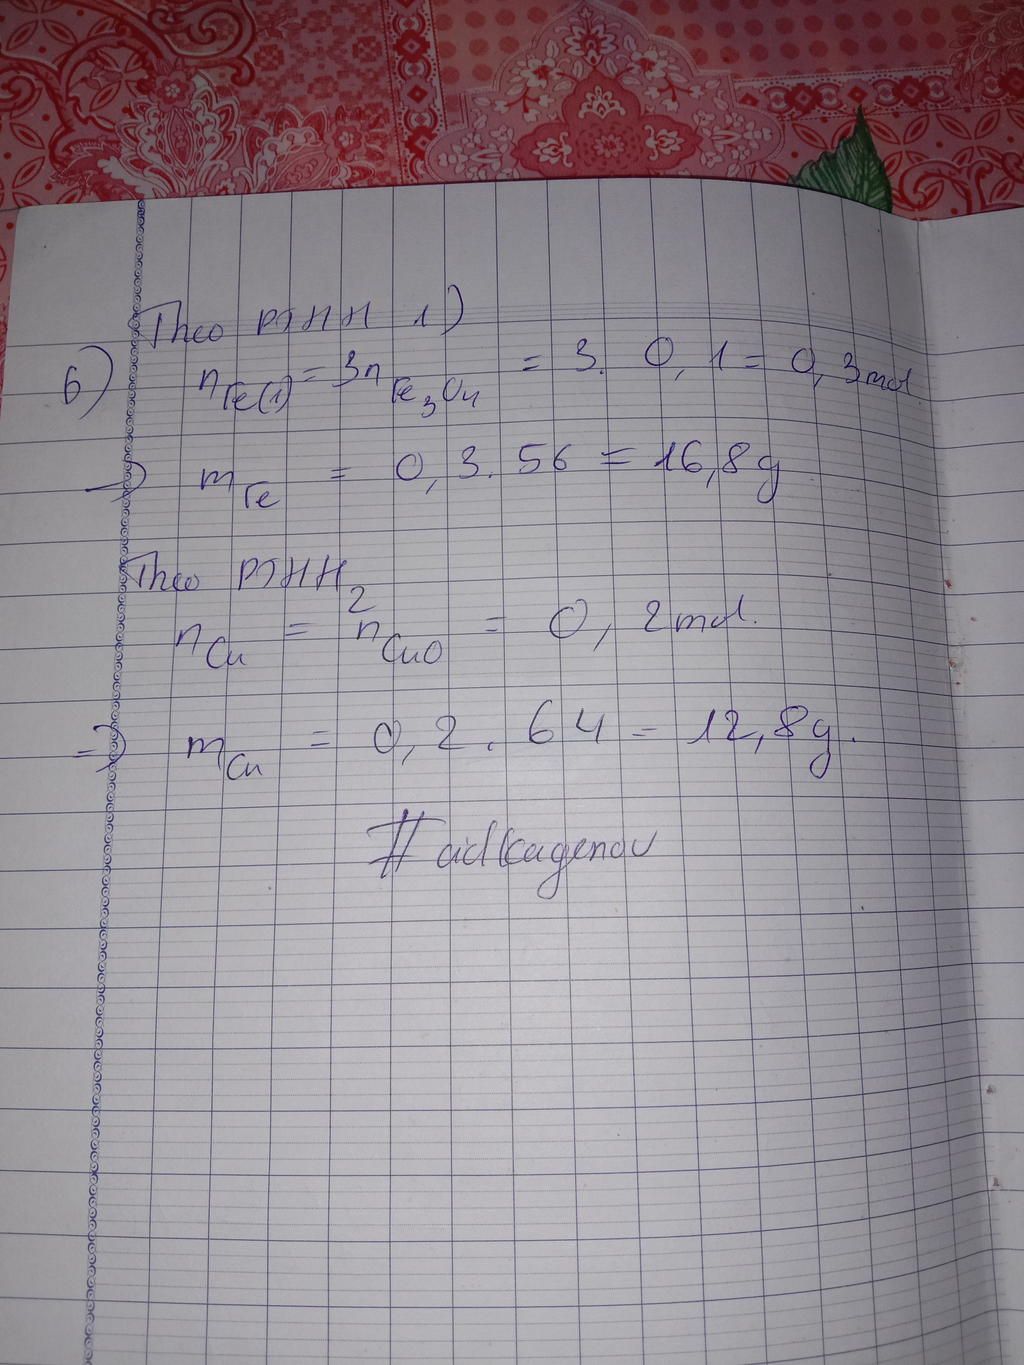 Theo PTHH 1)
6) nFe(1) = 3nFe3O4 = 3. 0,1 = 0,3mol.
=) mFe = 0,3. 56 = 16,8g
Theo PTHH2
nCu = nCuO = 0,2mol.
=) mCu = 0,2. 64 = 12,8g.